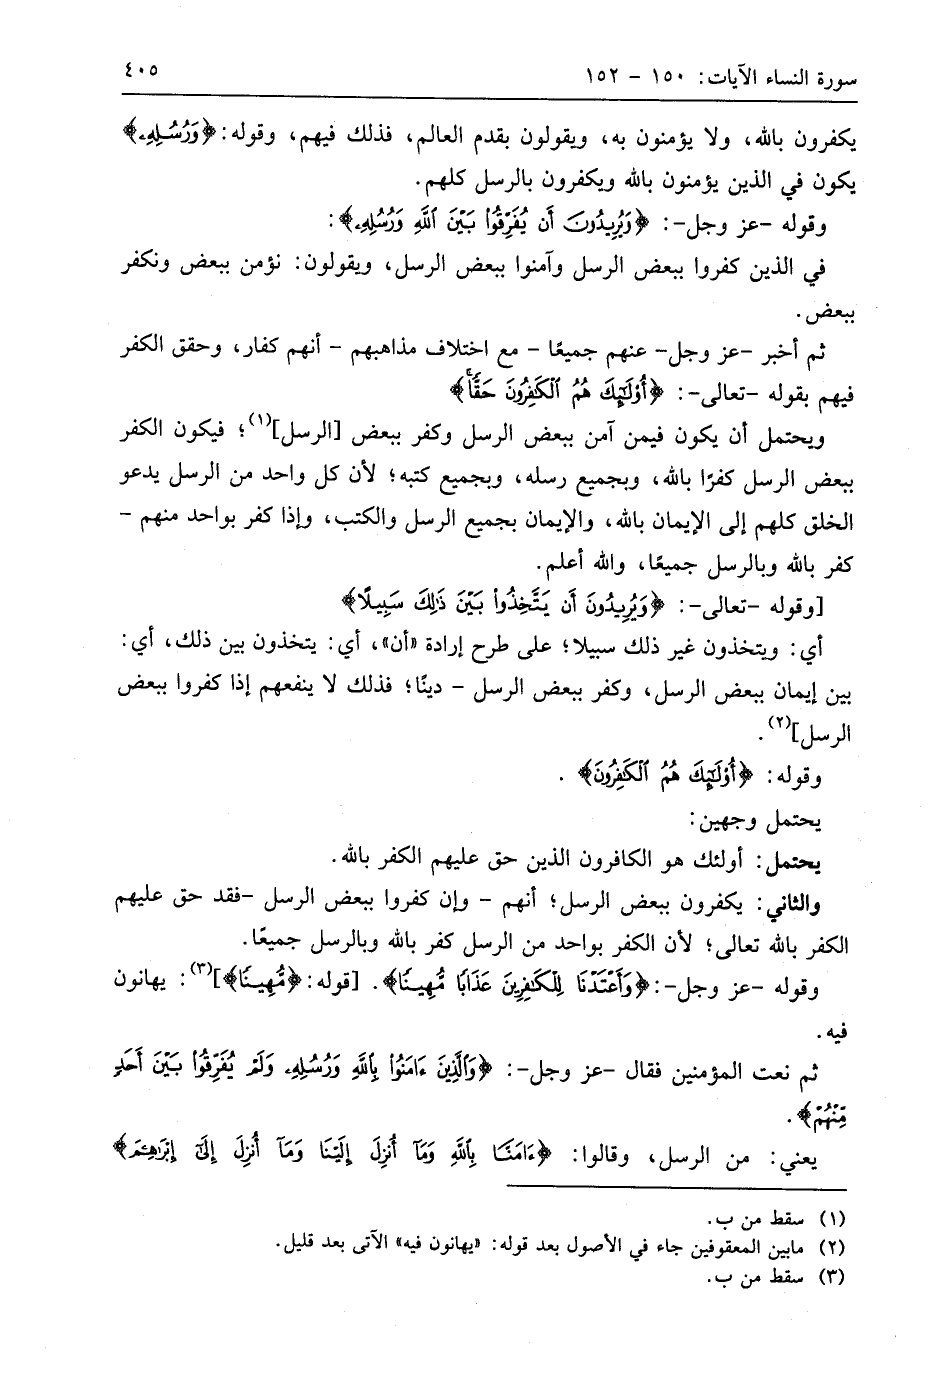 سورة النساء الآيات: ١٥٠ - ١٥٢ ٤٠٥
يكفرون بالله، ولا يؤمنون به، ويقولون بقدم العالم، فذلك فيهم، وقوله: ﴿وَرُسُلِهِۦ﴾
يكون في الذين يؤمنون بالله ويكفرون بالرسل كلهم.
وقوله -عز وجل-: ﴿وَيُرِيدُونَ أَن يُفَرِّقُوا۟ بَيْنَ ٱللَّهِ وَرُسُلِهِۦ﴾:
في الذين كفروا ببعض الرسل وآمنوا ببعض الرسل، ويقولون: نؤمن ببعض ونكفر
ببعض.
ثم أخبر -عز وجل- عنهم جميعًا - مع اختلاف مذاهبهم - أنهم كفار، وحقق الكفر
فيهم بقوله -تعالى-: ﴿أُو۟لَٰٓئِكَ هُمُ ٱلْكَٰفِرُونَ حَقًّا ۚ﴾
ويحتمل أن يكون فيمن آمن ببعض الرسل وكفر ببعض [الرسل](١)؛ فيكون الكفر
ببعض الرسل كفرًا بالله، وبجميع رسله، وبجميع كتبه؛ لأن كل واحد من الرسل يدعو
الخلق كلهم إلى الإيمان بالله، والإيمان بجميع الرسل والكتب، وإذا كفر بواحد منهم -
كفر بالله وبالرسل جميعًا، والله أعلم.
[وقوله -تعالى-: ﴿وَيُرِيدُونَ أَن يَتَّخِذُوا۟ بَيْنَ ذَٰلِكَ سَبِيلًا﴾
أي: ويتخذون غير ذلك سبيلا؛ على طرح إرادة «أن»، أي: يتخذون بين ذلك، أي:
بين إيمان ببعض الرسل، وكفر ببعض الرسل - دينًا؛ فذلك لا ينفعهم إذا كفروا ببعض
الرسل](٢).
وقوله: ﴿أُو۟لَٰٓئِكَ هُمُ ٱلْكَٰفِرُونَ﴾ .
يحتمل وجهين:
يحتمل: أولئك هو الكافرون الذين حق عليهم الكفر بالله.
والثاني: يكفرون ببعض الرسل؛ أنهم - وإن كفروا ببعض الرسل -فقد حق عليهم
الكفر بالله تعالى؛ لأن الكفر بواحد من الرسل كفر بالله وبالرسل جميعًا.
وقوله -عز وجل-: ﴿وَأَعْتَدْنَا لِلْكَٰفِرِينَ عَذَابًا مُّهِينًا﴾. [قوله: ﴿مُّهِينًا﴾](٣): يهانون
فيه.
ثم نعت المؤمنين فقال -عز وجل-: ﴿وَٱلَّذِينَ ءَامَنُوا۟ بِٱللَّهِ وَرُسُلِهِۦ وَلَمْ يُفَرِّقُوا۟ بَيْنَ أَحَدٍ
مِّنْهُمْ﴾.
يعني: من الرسل، وقالوا: ﴿ءَامَنَّا بِٱللَّهِ وَمَآ أُنزِلَ إِلَيْنَا وَمَآ أُنزِلَ إِلَىٰٓ إِبْرَٰهِـۧمَ﴾
(١) سقط من ب.
(٢) مابين المعقوفين جاء في الأصول بعد قوله: «يهانون فيه» الآتى بعد قليل.
(٣) سقط من ب.